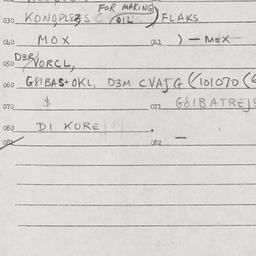 FOR MAKING
030 KONOPLESS ( OIL ) FLAKS
040 MOX 041 ) — MOX
050 D3R/VORCL,
060 G81BAS+OKL, D3M CVAJG (/101070 (
070 $ 071 G81BATREJS
080 DI KORE . 
081 082 —